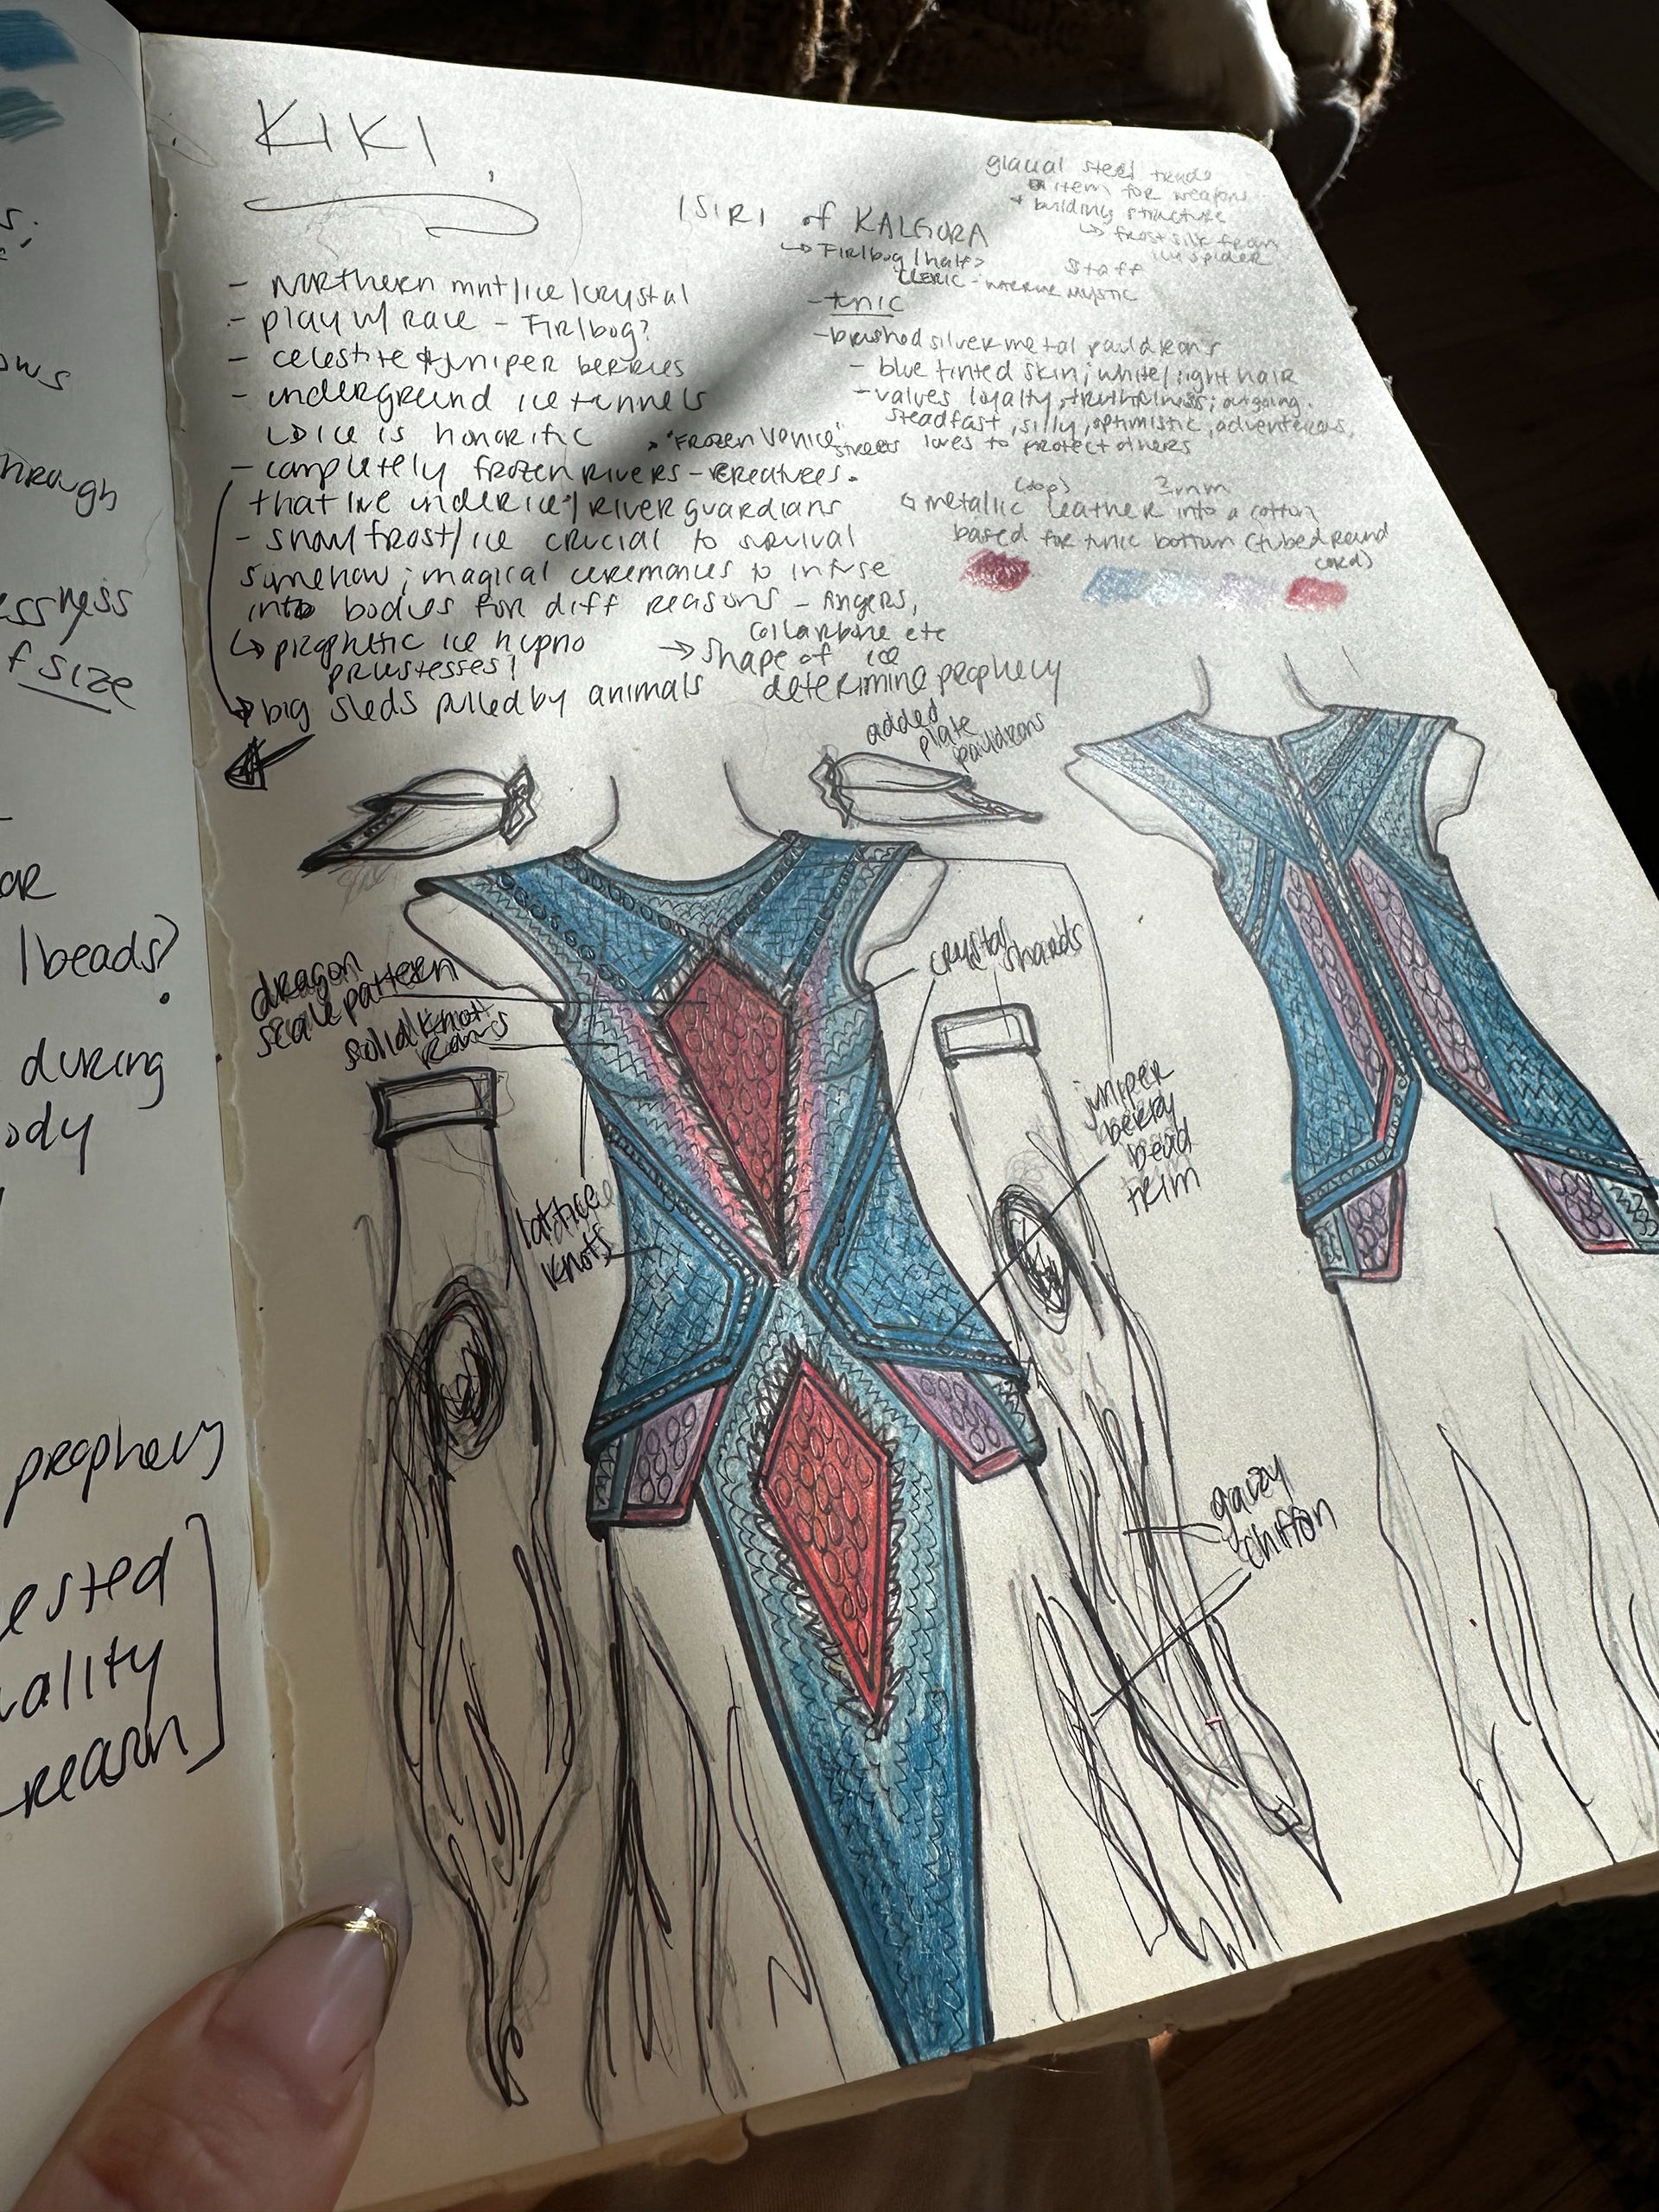 KIKI
ISIRI of KALGORA
↳ Firlbog/half>
CLERIC -
glacial steel trade
item for weapons
+ building structure
↳ frost silk from
icy spider
Staff
- Northern mnt/ice/crystal
- play w/ race - Firlbog?
- celestite & juniper berries
- underground ice tunnels
↳ ice is honorific
"Frozen Venice" streets
- completely frozen rivers - creatures
that live under ice / River guardians
- snow/frost/ice crucial to survival
somehow; magical ceremonies to infuse
into bodies for diff reasons - fingers,
collarbone etc
↳ prophetic ice hypno
priestesses!
→ shape of ice
determine prophecy
→ big sleds pulled by animals
- tunic
- brushed silver metal pauldrons
- blue tinted skin; white/light hair
- values loyalty, truthfulness; outgoing,
steadfast, silly, optimistic, adventerous,
loves to protect others
(top) 2mm
metallic leather into a cotton
based for tunic bottom (tubed round
cord)
added
plate
pauldrons
dragon
scale pattern
solid knot
rows
crystal shards
lattice
knots
juniper
berry
bead
trim
gauzy
chiffon
ows
hrough
essness
f size
or
/beads?
during
ody
prophecy
ested
ality
reason